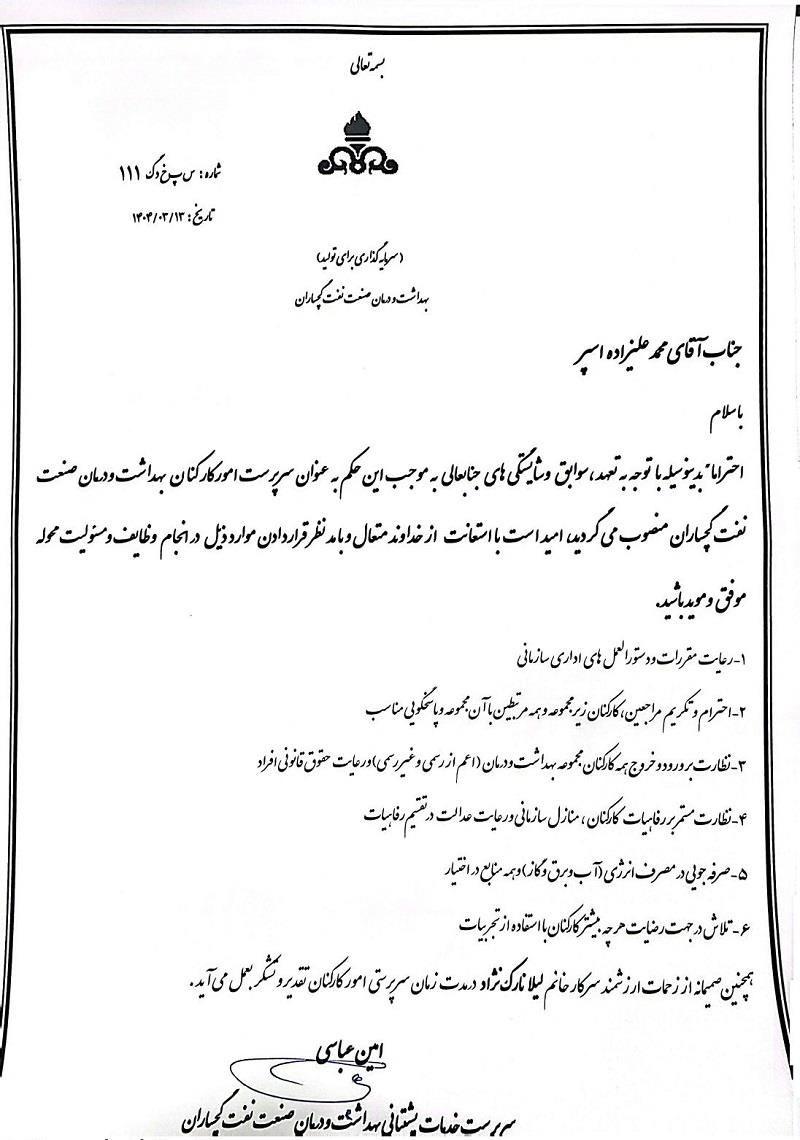 بسمه تعالی
شماره: س پ خ د گ ۱۱۱
تاریخ: ۱۴۰۴/۰۳/۱۳
(سرمایه گذاری برای تولید)
بهداشت و درمان صنعت نفت گچساران
جناب آقای محمد علیزاده اسپر
با سلام
احتراما" بدینوسیله با توجه به تعهد ، سوابق و شایستگی های جنابعالی به موجب این حکم به عنوان سرپرست امور کارکنان بهداشت و درمان صنعت
نفت گچساران منصوب می گردید، امید است با استعانت از خداوند متعال و با مد نظر قرار دادن موارد ذیل در انجام وظایف و مسئولیت محوله
موفق و موید باشید.
۱-رعایت مقررات و دستورالعمل های اداری سازمانی
۲-احترام و تکریم مراجعین، کارکنان زیر مجموعه و همه مرتبطین با آن مجموعه و پاسخگویی مناسب
۳-نظارت بر ورود و خروج همه کارکنان مجموعه بهداشت و درمان (اعم از رسمی و غیر رسمی) و رعایت حقوق قانونی افراد
۴-نظارت مستمر بر رفاهیات کارکنان ، منازل سازمانی و رعایت عدالت در تقسیم رفاهیات
۵-صرفه جویی در مصرف انرژی (آب و برق و گاز) و همه منابع در اختیار
۶-تلاش در جهت رضایت هر چه بیشتر کارکنان با استفاده از تجربیات
همچنین صمیمانه از زحمات ارزشمند سرکار خانم لیلا نارک نژاد در مدت زمان سرپرستی امور کارکنان تقدیر و تشکر بعمل می آید .
امین عباسی
سرپرست خدمات پشتیبانی بهداشت و درمان صنعت نفت گچساران